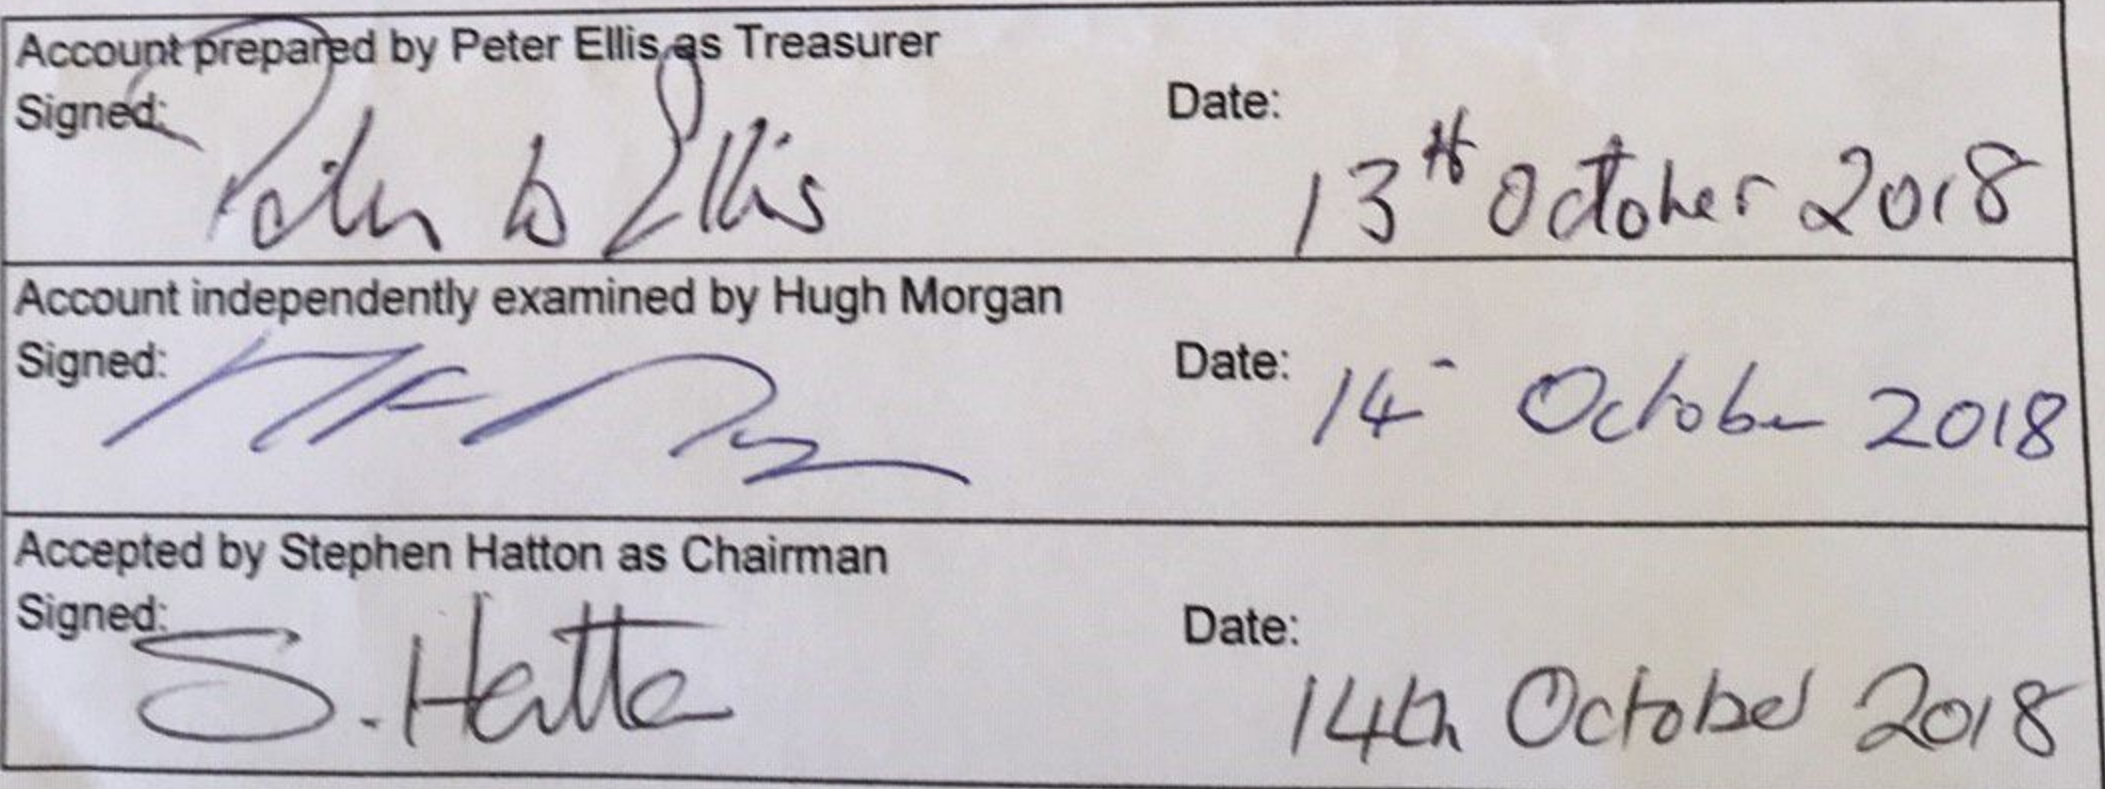 Account prepared by Peter Ellis as Treasurer
Signed: Peter W Ellis
Date: 13th October 2018
Account independently examined by Hugh Morgan
Signed:
Date: 14 October 2018
Accepted by Stephen Hatton as Chairman
Signed: S. Hatton
Date: 14th October 2018